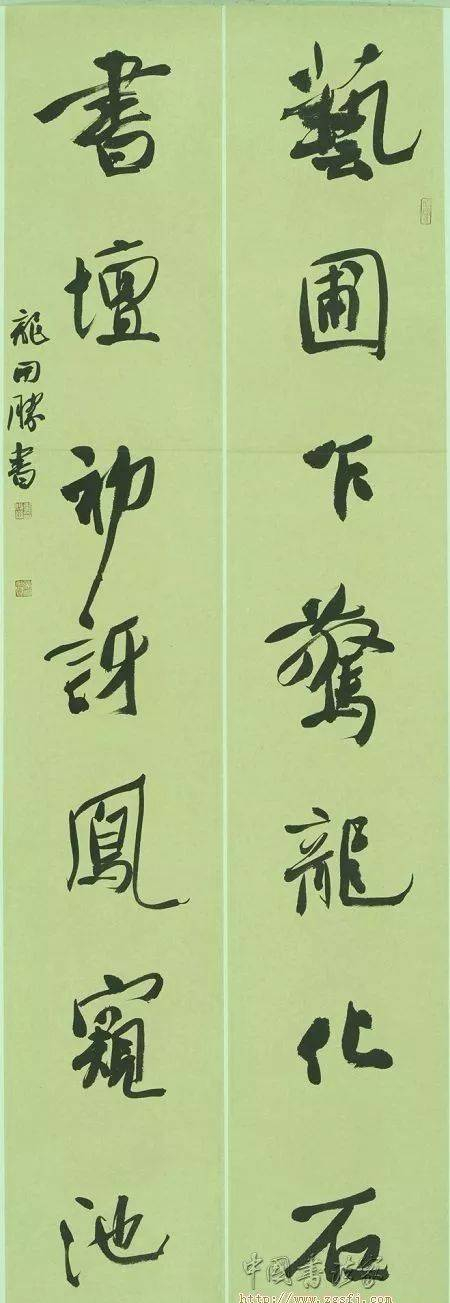 藝圃乍驚龍化石
書壇初訝鳳窺池
龍開勝書
中國書法家
http://www.zgsfj.com